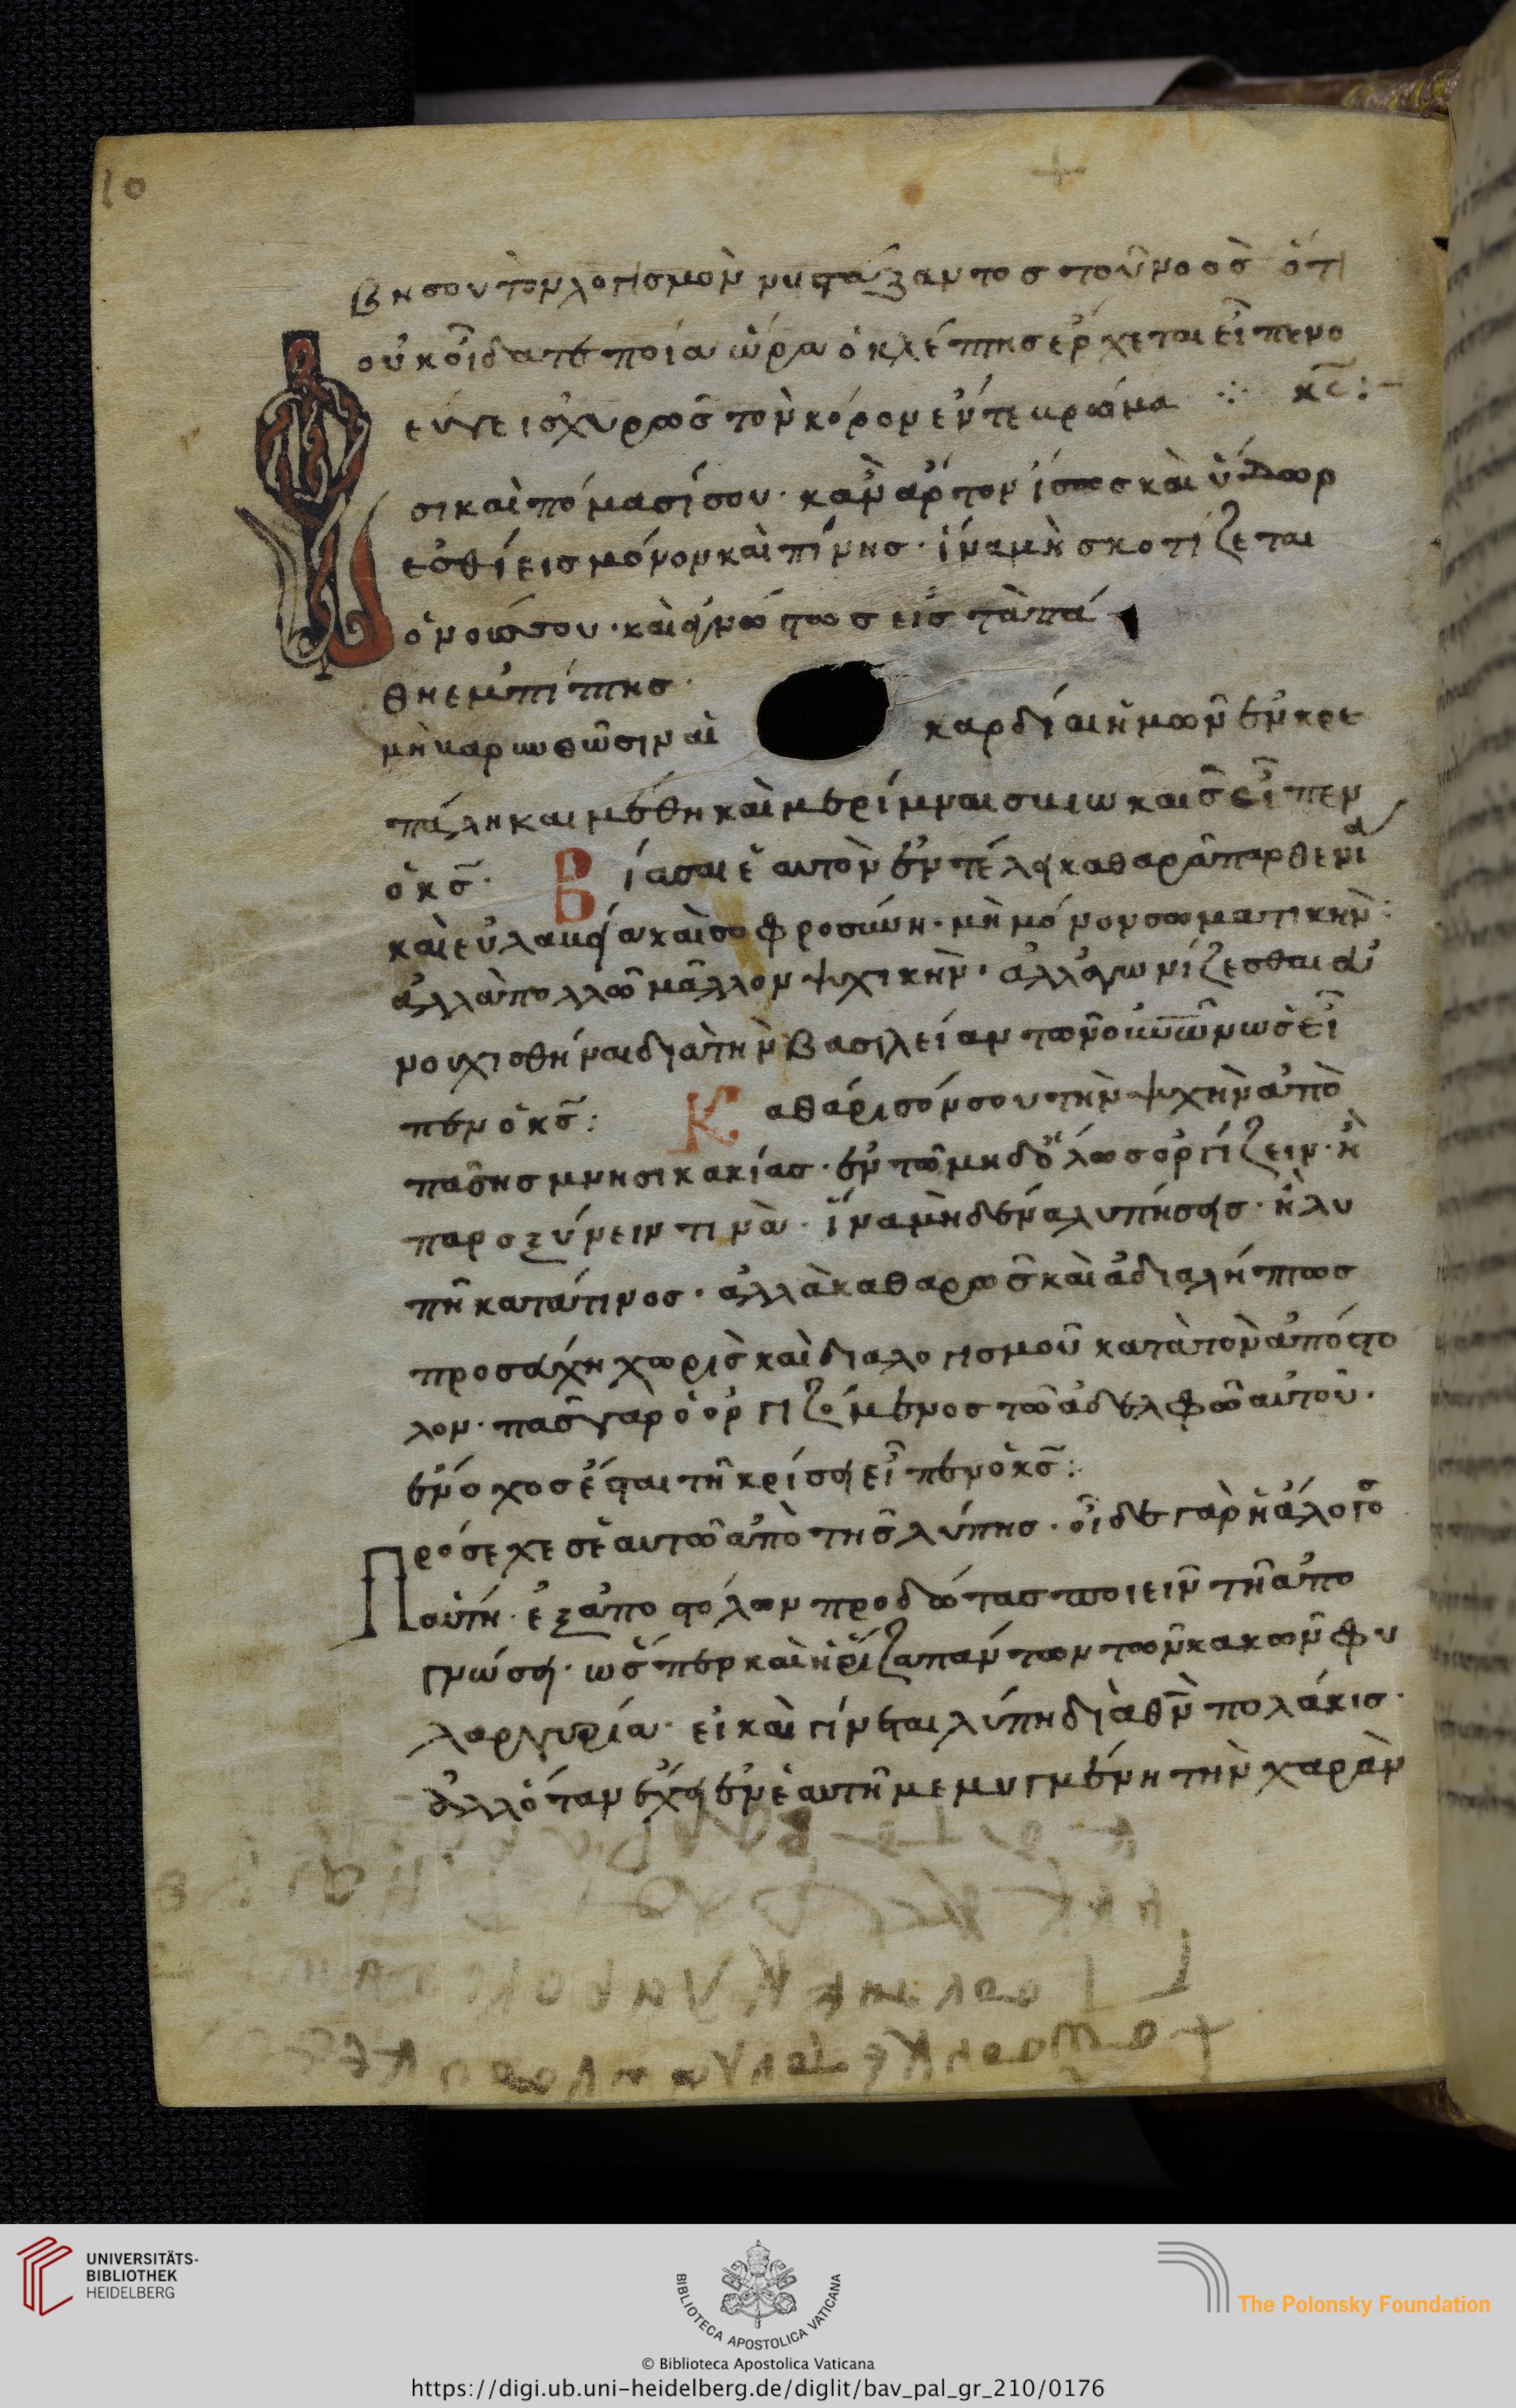 10
βησου τὸν λογισμὸν νυστάξαντος τοῦ νοὸς ὅτι
οὐκ οἴδατε ποία ὥρα ὁ κλέπτης ἔρχεται εἶπεν ὁ
κς:
Φεύγε ἰσχυρῶς τὸν κόρον ἔν τε βρώμα
σι καὶ πόμασί σου· κἂν ἄρτον ἴσως καὶ ὕδωρ
ἐσθίεις μόνον καὶ πίνης· ἵνα μὴ σκοτίζεται
ὁ νοῦς σου· καὶ ἀνώστως εἰς τὰ πά
θη ἐμπίπτης·
μὴ βαρυνθῶσιν αἱ καρδίαι ἡμῶν ἐν κρε
πάλη και μέθη καὶ μερίμναις βιωτικαῖς εἶπεν
ὁ κς· Βίασαι ἑαυτὸν ἐν τέλει καθαρᾶ παρθενία
καὶ εὐλαβεία καὶ σοφροσύνη· μὴ μόνον σωματικὴν:
ἀλλὰ πολλῶ μᾶλλον ψυχικὴν· ἀλλ' ἀγωνίζεσθαι εὐ
νουχισθήναι διὰ τὴν βασιλείαν τῶν οὐνῶν ὡς εἶ
πεν ὁ κς: Καθάρισόν σου τὴν ψυχὴν ἀπὸ
πάσης μνησικακίας· ἐν τῶ μηδόλως ὀργίζειν· ἢ
παροξύνειν τινὰ· ἵνα μὴ δένα λυπήσεις· ἢ λυ
πῆ κατάτινος· ἀλλὰ καθαρῶς καὶ ἀδιαλήπτως
προσεύχη χωρὶς καὶ διαλογισμοῦ κατὰ τὸν ἀπόστο
λον· πᾶς γὰρ ὁ ὀργιζόμενος τῶ ἀδελφῶ αὐτοῦ·
ἔνοχος ἔσται τῆ κρίσει εἶπεν ὁ κς:
Πρόσεχε σεαυτῶ ἀπὸ τῆς λύπης· οἶδε γὰρ ἡ ἄλογος
αὕτη· ἐξ ἀποστόλων προδότας ποιεῖν τῆ ἀπο
γνώσει· ὥσπερ καὶ ἡ ῥίζα πάντων τῶν κακῶν φυ
λαργυρία· εἰ καὶ γίνεται λύπη διὰ θν πολάκις·
ἀλλ' ὅταν ἔχει ἐν ἑαυτῆ μεμυγμένη τὴν χαρὰν
UNIVERSITÄTS-
BIBLIOTHEK
HEIDELBERG
BIBLIOTECA APOSTOLICA VATICANA
The Polonsky Foundation
© Biblioteca Apostolica Vaticana
https://digi.ub.uni-heidelberg.de/diglit/bav_pal_gr_210/0176